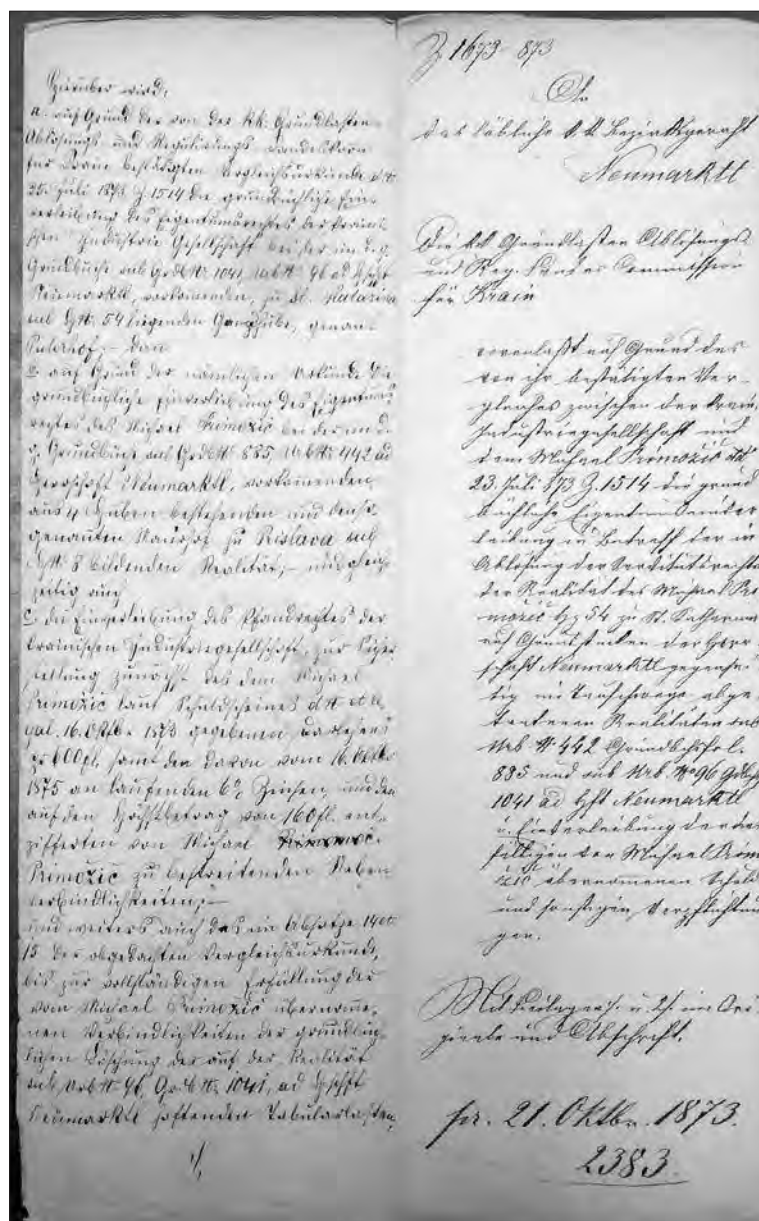 Hierüber wird:
a. auf Grund der von der kk. Grundlasten
Ablösungs und Regulirungs Landeskom
für Krain bestätigten Vergleichsurkunde
25. Juli 1873 Z. 1514 die grundbüchliche Ein-
verleibung des Eigentumsrechtes der krain
schen Industrie Gesellschaft bei der im
Grundbuche sub Grdb№ 1041, Urb№ 96 ad Hschft
Neumarktl, vorkommenden, zu St. Katarina
sub H№ 54 liegenden Ganzhube, genan-
dan
b. auf Grund der nämlichen Urkunde die
grundbüchliche Einverleibung des Eigentums
rechtes des Michael Primožič bei der im
g. Grundbuch sub Grdb№ 885, Urb№ 442 ad
Herrschaft Neumarktl, vorkommenden,
aus 4 Huben bestehenden und den so
genannten Mairhof zu Ristava sub
H№ 8 bildenden Realität, – und gleich-
zeitig auch
c. die Einverleibung des Pfandrechtes der
krainischen Industriegesellschaft, zur Sicher
stellung zunächst des dem Michael
Primožič laut Schuldscheines
16. Oktbr 1873 gegebenen Darlehens
pr 600 fl. samt den davon vom 16. Oktbr
1875 an laufenden 6% Zinsen, und den
auf den Höchstbetrag von 160 fl. ent-
zifferten von Michael
Primožič zu bestreitenden Neben
verbindlichkeiten; –
und weiters auch das im Absatze 14 et
15 der obgedachten Vergleichsurkunde,
bis zur vollständigen Erfüllung der
vom Michael Primožič übernomme-
nen Verbindlichkeiten der grundbüch-
lichen Löschung der auf der Realität
sub Urb№ 96, Grdb№ 1041, ad Hschft
Neumarktl haftenden Tabularlasten,
·/.
Z 1673–873
An
das löbliche k. k. Bezirksgericht
Neumarktl
Die kk Grundlasten Ablösungs
und Reg. Landes Commission
für Krain
veranlaßt auf Grund des
von ihr bestätigten Ver-
gleiches zwischen der krain.
Industriegesellschaft und
dem Michael Primožič
23. Juli 873 Z. 1514 die grund
bücherliche Eigentum Einver
leibung in Betreff der in
Ablösung der Servitutsrechte
der Realität des Michael Pri
možič Hz 54 zu St. Katharina
auf Grundstücken der Herr
schaft Neumarktl gegensei
tig im Tauschwege abge
tretenen Realitäten sub
Urb № 442 Grundbchsfol.
885 und sub Urb. № 96 Grdbch
1041 ad Hft Neumarktl
u. Einverleibung der dies
fälligen von Michael Primo
žič übernommenen Schuld
und sonstigen Verpflichtun
gen.
Mit Beilagen 1/. u. 2/. im Ori
ginale und Abschrift.
pr. 21. Oktbr. 1873.
2383.